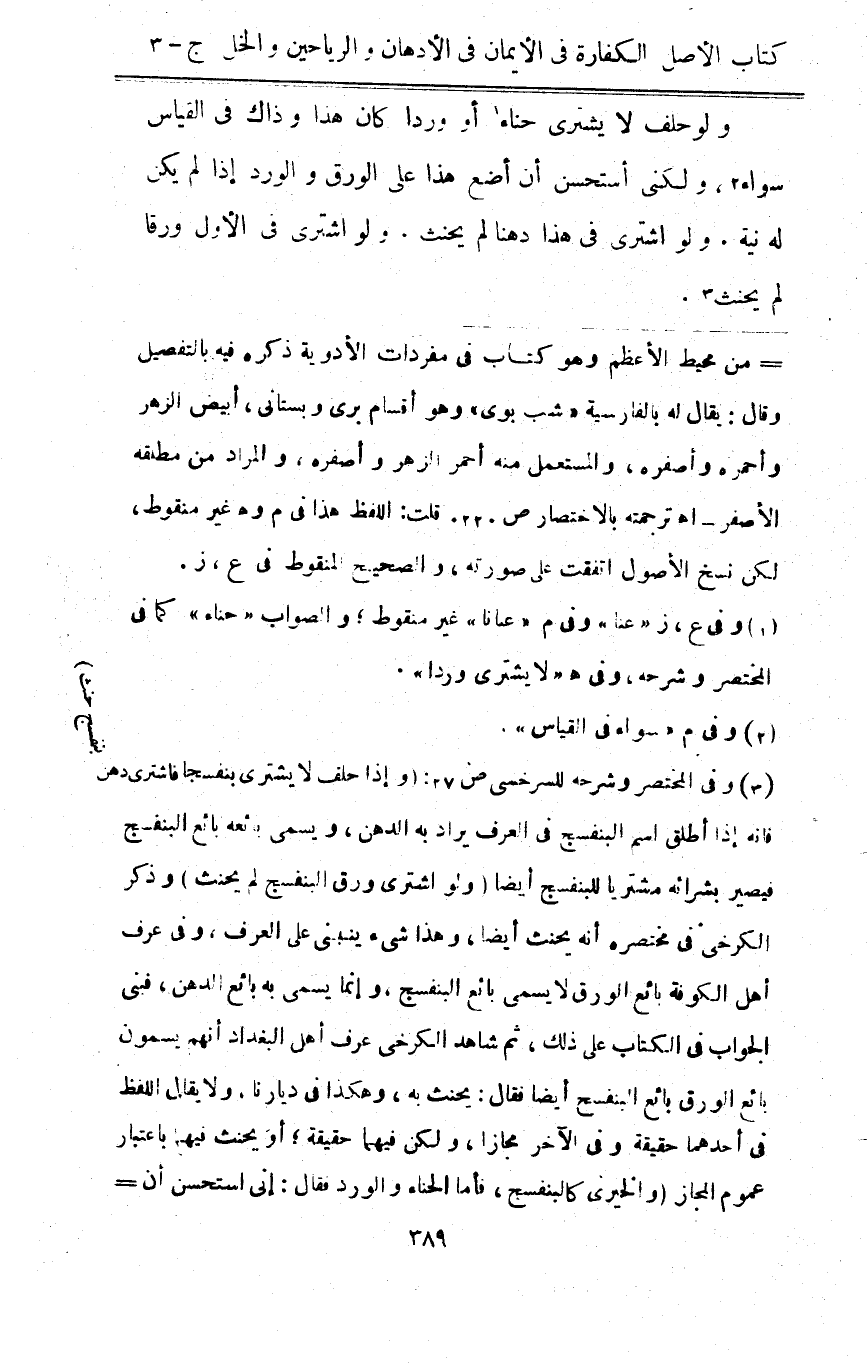 كتاب الأصل الكفارة فى الأيمان فى الأدهان و الرياحين و الخل ج – ٣
و لو حلف لا يشترى حناء١ أو وردا كان هذا و ذاك فى القياس
سواء٢ ، و لكنى أستحسن أن أضع هذا على الورق و الورد إذا لم يكن
له نية . و لو اشترى فى هذا دهنا لم يحنث . و لو اشترى فى الأول ورقا
لم يحنث٣ .
= من محيط الأعظم وهو كتاب فى مفردات الأدوية ذكره فيه بالتفصيل
وقال : يقال له بالفارسية «شب بوى» وهو أقسام برى و بستانى ، أبيض الزهر
و أحمره و أصفره ، و المستعمل منه أحمر الزهر و أصفره ، و المراد من مطلقه
الأصفر – اه ترجمته بالاختصار ص ٢٢٠. قلت: اللفظ هذا فى م و ه غير منقوط،
لكن نسخ الأصول اتفقت على صورته ، و الصحيح المنقوط فى ع ، ز .
(١) و فى ع ، ز «عنا» و فى م «عنانا» غير منقوط ؛ و الصواب «حناء» كما فى
المختصر و شرحه ، و فى ه «لا يشترى وردا» .
(٢) و فى م «سواء فى القياس» .
(٣) و فى المختصر وشرحه للسرخسى ص ٢٧: (و إذا حلف لا يشترى بنفسجا فاشترى دهن
بنفسج حنث)
فانه إذا أطلق اسم البنفسج فى العرف يراد به الدهن ، و يسمى بائعه بائع البنفسج
فيصير بشرائه مشتريا للبنفسج أيضا ( ولو اشترى ورق البنفسج لم يحنث ) و ذكر
الكرخى فى مختصره أنه يحنث أيضا ، و هذا شىء ينبنى على العرف ، و فى عرف
أهل الكوفة بائع الورق لا يسمى بائع البنفسج ، و إنما يسمى به بائع الدهن ، فبنى
الجواب فى الكتاب على ذلك ، ثم شاهد الكرخى عرف أهل البغداد أنهم يسمون
بائع الورق بائع البنفسج أيضا فقال : يحنث به ، و هكذا فى ديارنا. و لا يقال اللفظ
فى أحدهما حقيقة و فى الآخر مجازا ، و لكن فيهما حقيقة ؛ أو يحنث فيهما باعتبار
عموم المجاز (و الخيرى كالبنفسج ، فأما الحناء و الورد فقال : إنى استحسن أن =
٣٨٩